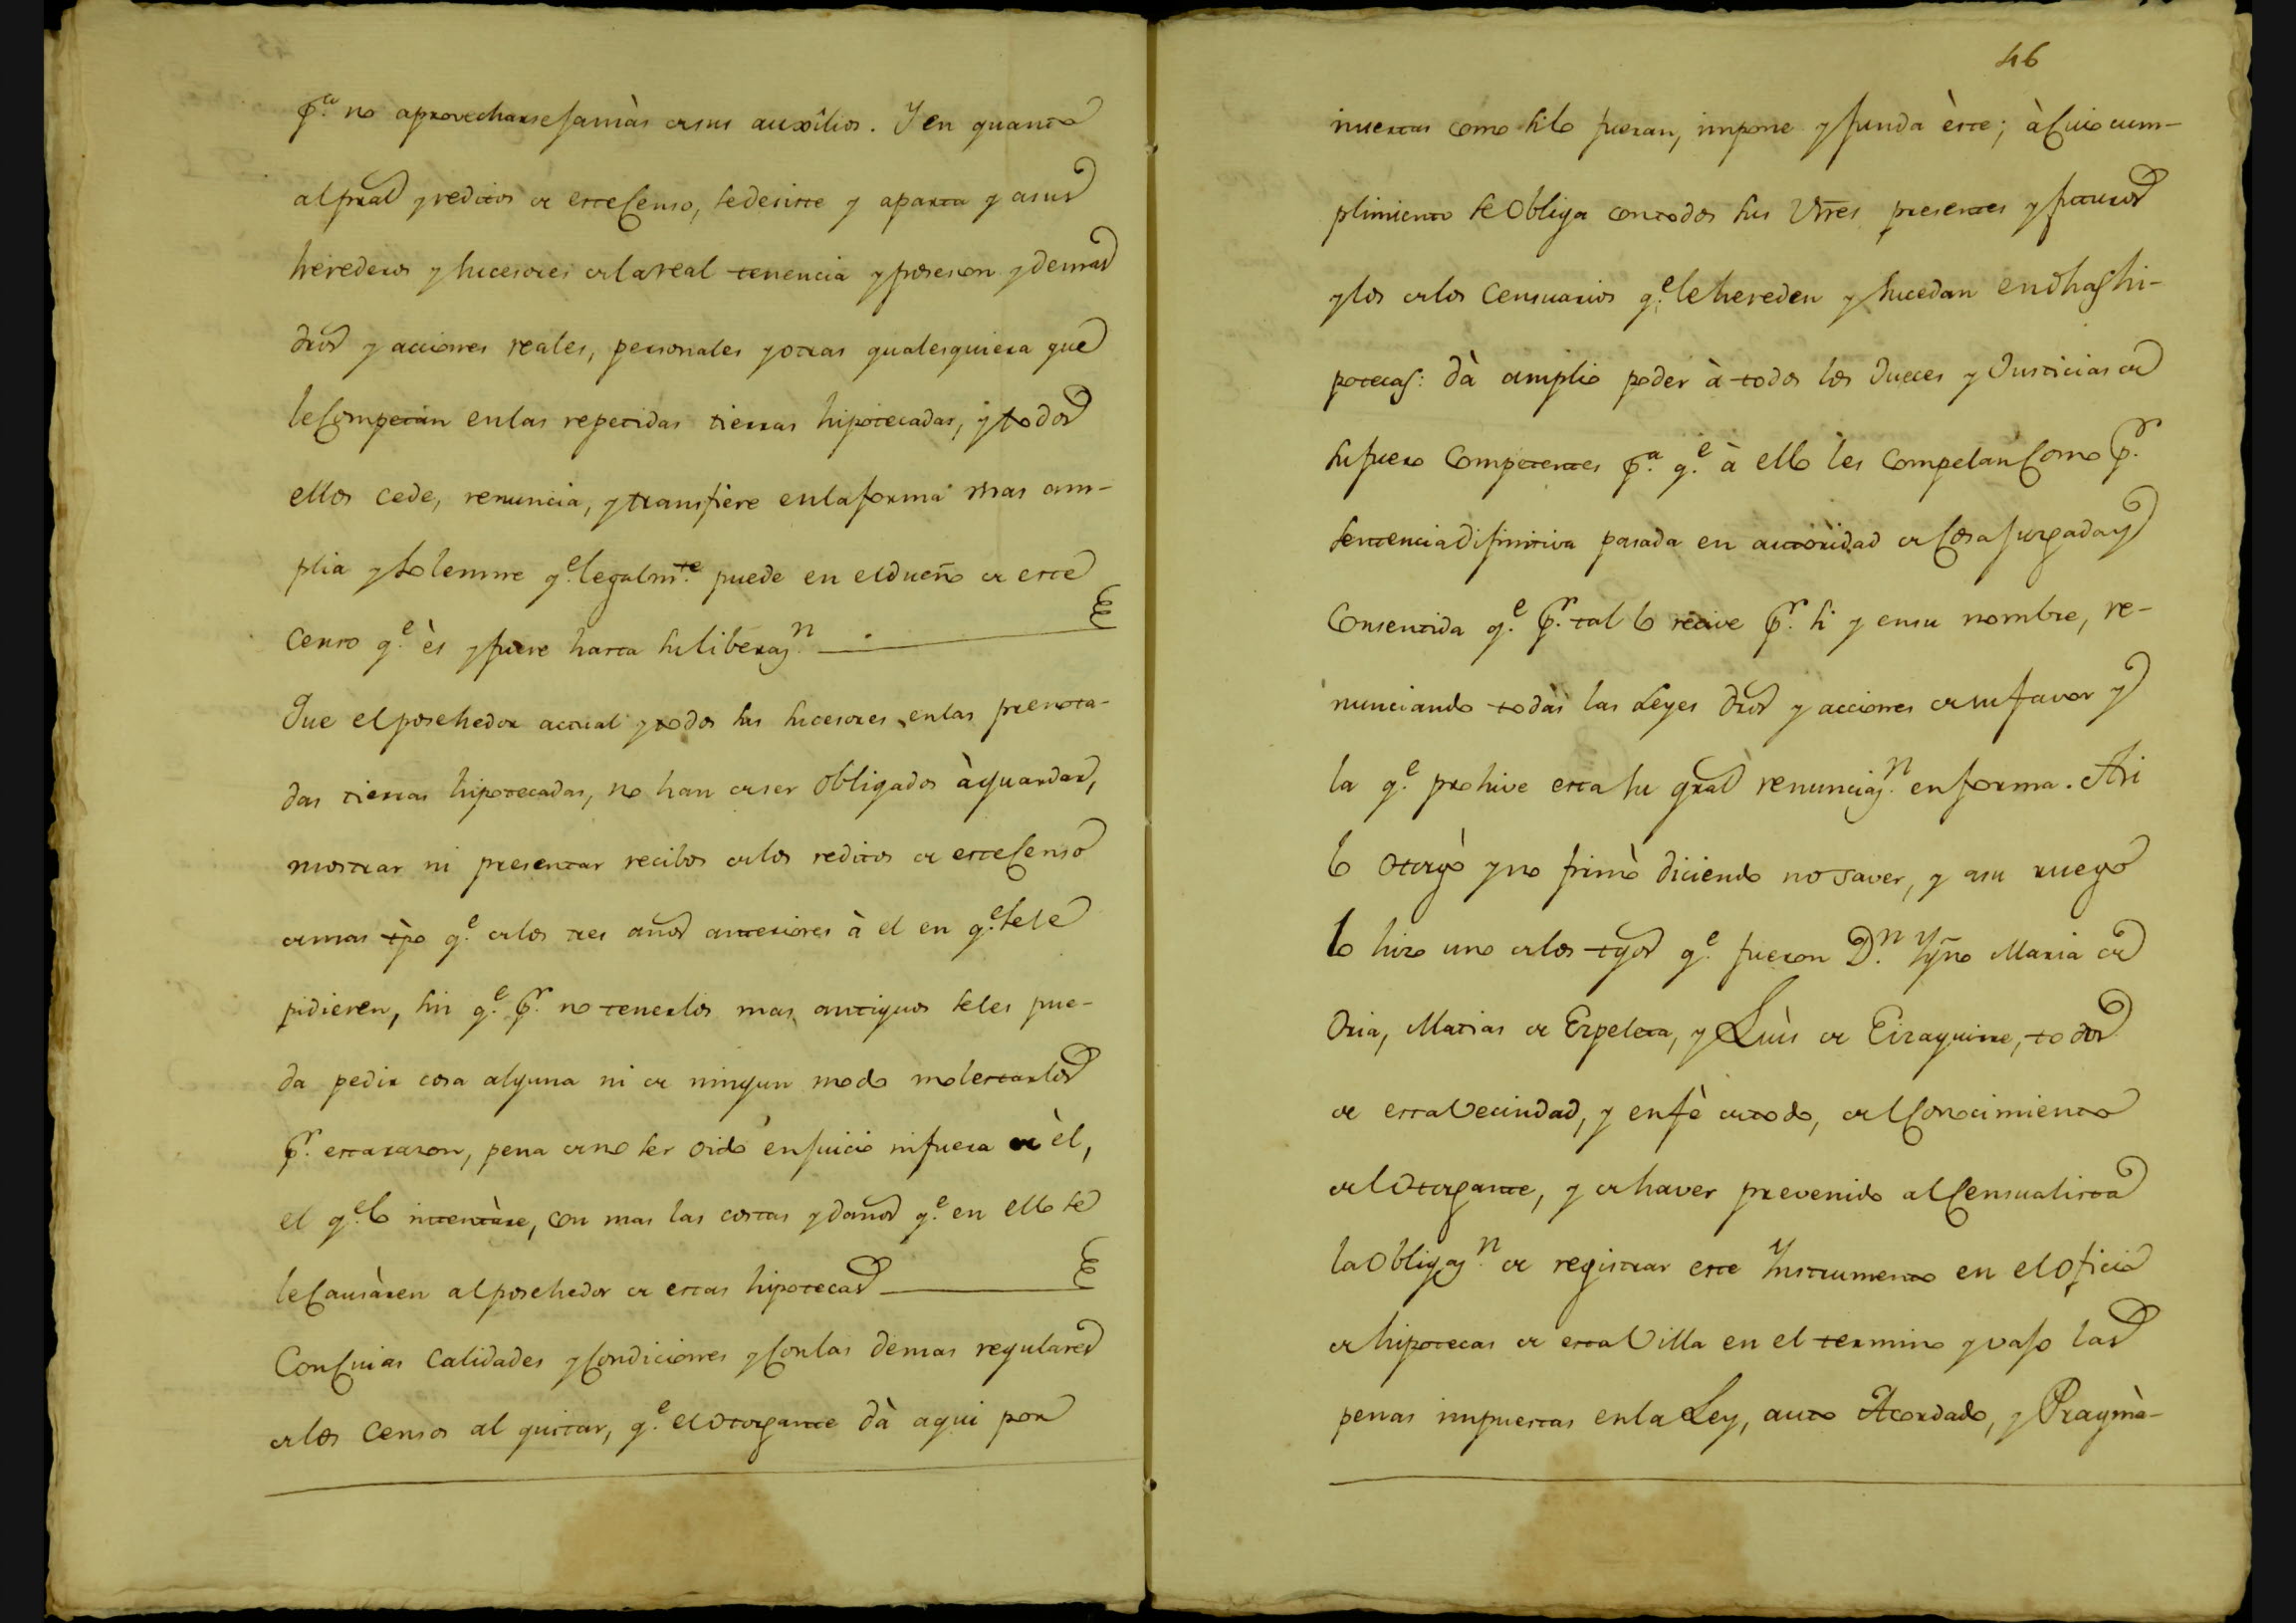 p.ª no aprovecharse jamàs de sus auxîlios. Y en quanto
al pral y reditos de este Censo, se desiste y aparta y a sus
herederos y sucesores de la real tenencia y posesion y demas
dros y acciones reales, personales y otras qualesquiera que
le Competan en las repetidas tierras hipotecadas, y todos
ellos cede, renuncia, y transfiere en la forma mas am-
plia y solemne q.e legalm.te puede en el dueño de este
Censo q.e ès y fuere hasta su liberaz.n
Que el posehedor actual y todos sus sucesores en las prenota-
das tierras hipotecadas, no han de ser Obligados à guardar,
mostrar ni presentar recibos de los reditos de este Censo
de mas tpo q.e de los tres años anteriores à el en q.e se le
pidieren, sin q.e p.r no tenerlos mas antiguos se les pue-
da pedir cosa alguna ni de ningun modo molestarlos
p.r esta razon, pena de no ser oido en juicio ni fuera de èl,
el q.e lo intentàre, con mas las costas y daños q.e en ello se
le Causàren al posehedor de estas hipotecas
Con Cuias Calidades y Condiciones y Con las demas regulares
de los Censos al quitar, q.e el Otorgante dà aqui por
46
insertas como si lo fueran, impone y funda èste; à Cuio cum-
plimiento se Obliga con todos sus Vnes presentes y futuros
y los de los Censuarios q.e le hereden y sucedan en dhas hi-
potecas: dà amplio poder à todos los Jueces y Justicias de
su fuero Competentes p.ª q.e à ello les Compelan Como p.r
sentencia difinitiva pasada en autoridad de Cosa juzgada y
Consentida q.e p.r tal lo recive p.r si y en su nombre, re-
nunciando todas las Leyes dros y acciones de su favor y
la q.e prohive esta su gral renunciaz.n en forma. Asi
lo otorgò y no firmò diciendo no saver, y a su ruego
lo hizo uno de los tgos q.e fueron D.n Ygno Maria de
Oria, Matias de Ezpeleta, y Luìs de Eizaguirre, todos
de esta Vecindad, y en fè de todo, de el Conocimiento
de el Otorgante, y de haver prevenido al Censualista
la Obligaz.n de registrar este Ynstrumento en el oficio
de hipotecas de esta Villa en el termino y vajo las
penas impuestas en la Ley, auto Acordado, y Pragmà-